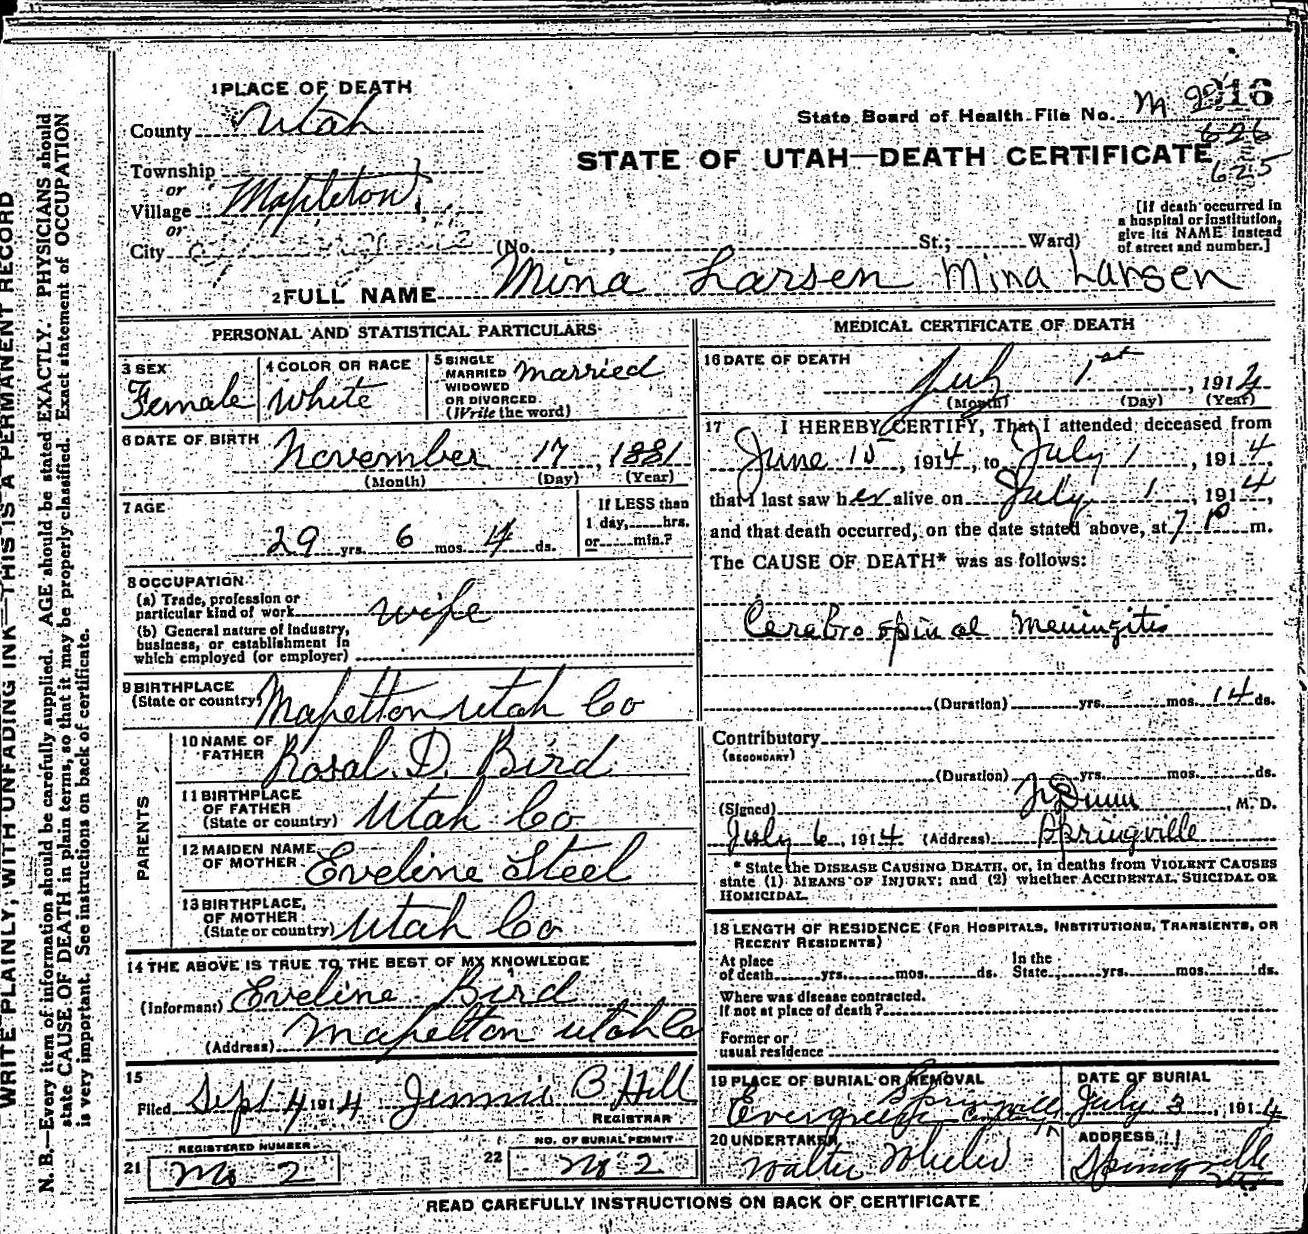 WRITE PLAINLY, WITH UNFADING INK—THIS IS A PERMANENT RECORD
N. B.—Every item of information should be carefully supplied. AGE should be stated EXACTLY. PHYSICIANS should
state CAUSE OF DEATH in plain terms, so that it may be properly classified. Exact statement of OCCUPATION
is very important. See instructions on back of certificate.
1 PLACE OF DEATH
County Utah
Township
or
Village Mapleton
or
City
(No. , St.; Ward)
State Board of Health File No. M 16
626
625
STATE OF UTAH—DEATH CERTIFICATE
[If death occurred in
a hospital or institution,
give its NAME instead
of street and number.]
2 FULL NAME Mina Larsen Mina Larsen
PERSONAL AND STATISTICAL PARTICULARS
3 SEX
Female
4 COLOR OR RACE
White
5 SINGLE
MARRIED
WIDOWED
OR DIVORCED
(Write the word)
married
6 DATE OF BIRTH
November 17, 1881
(Month) (Day) (Year)
7 AGE
29 yrs. 6 mos. 4 ds.
If LESS than
1 day, hrs.
or min.?
8 OCCUPATION
(a) Trade, profession or
particular kind of work wife
(b) General nature of industry,
business, or establishment in
which employed (or employer)
9 BIRTHPLACE
(State or country) Mapelton Utah Co
PARENTS
10 NAME OF
FATHER Rosal D. Bird
11 BIRTHPLACE
OF FATHER
(State or country) Utah Co
12 MAIDEN NAME
OF MOTHER Eveline Steel
13 BIRTHPLACE
OF MOTHER
(State or country) Utah Co
14 THE ABOVE IS TRUE TO THE BEST OF MY KNOWLEDGE
(Informant) Eveline Bird
(Address) Mapelton Utah Co
15
Filed Sept 4 1914 Jennie B Hill
REGISTRAR
REGISTERED NUMBER
21 No 2
NO. OF BURIAL PERMIT
22 No 2
MEDICAL CERTIFICATE OF DEATH
16 DATE OF DEATH
July 1st, 1914
(Month) (Day) (Year)
17 I HEREBY CERTIFY, That I attended deceased from
June 15, 1914, to July 1, 1914
that I last saw her alive on July 1, 1914,
and that death occurred, on the date stated above, at 7 P m.
The CAUSE OF DEATH* was as follows:
Cerebro spinal Meningitis
(Duration) yrs. mos. 14 ds.
Contributory
(SECONDARY)
(Duration) yrs. mos. ds.
(Signed) Dunn, M. D.
July 6, 1914 (Address) Springville
* State the DISEASE CAUSING DEATH, or, in deaths from VIOLENT CAUSES
state (1) MEANS OF INJURY; and (2) whether ACCIDENTAL, SUICIDAL OR
HOMICIDAL.
18 LENGTH OF RESIDENCE (FOR HOSPITALS, INSTITUTIONS, TRANSIENTS, OR
RECENT RESIDENTS)
At place
of death yrs. mos. ds.
In the
State yrs. mos. ds.
Where was disease contracted.
If not at place of death?
Former or
usual residence
19 PLACE OF BURIAL OR REMOVAL
Springville
Evergreen
DATE OF BURIAL
July 3, 1914
20 UNDERTAKER
Walter Wheeler
ADDRESS
Springville
READ CAREFULLY INSTRUCTIONS ON BACK OF CERTIFICATE